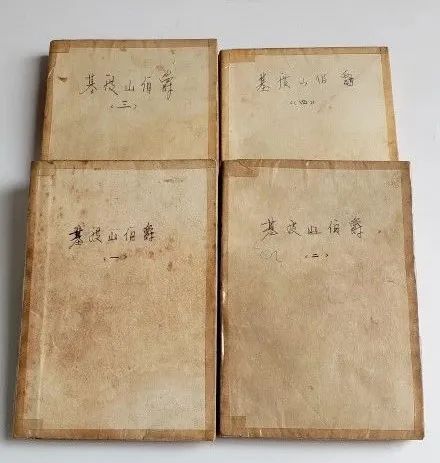 基度山伯爵
(三)
基度山伯爵
(四)
基度山伯爵
(一)
基度山伯爵
(二)